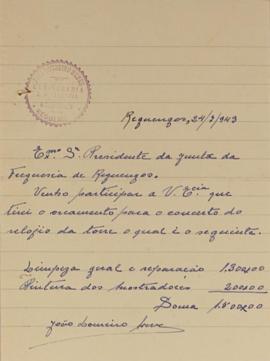 Reguengos, 24/3/943
Exmo Sr. Presidente da Junta da
Freguesia de Reguengos.
Venho participar a V. Excia que
tirei o orçamento para o concerto do
relojio da torre o qual é o seguinte.
Limpeza geral e reparação 1.300$00
Pintura dos mostradores 200$00
Soma 1.500$00
João Loureiro